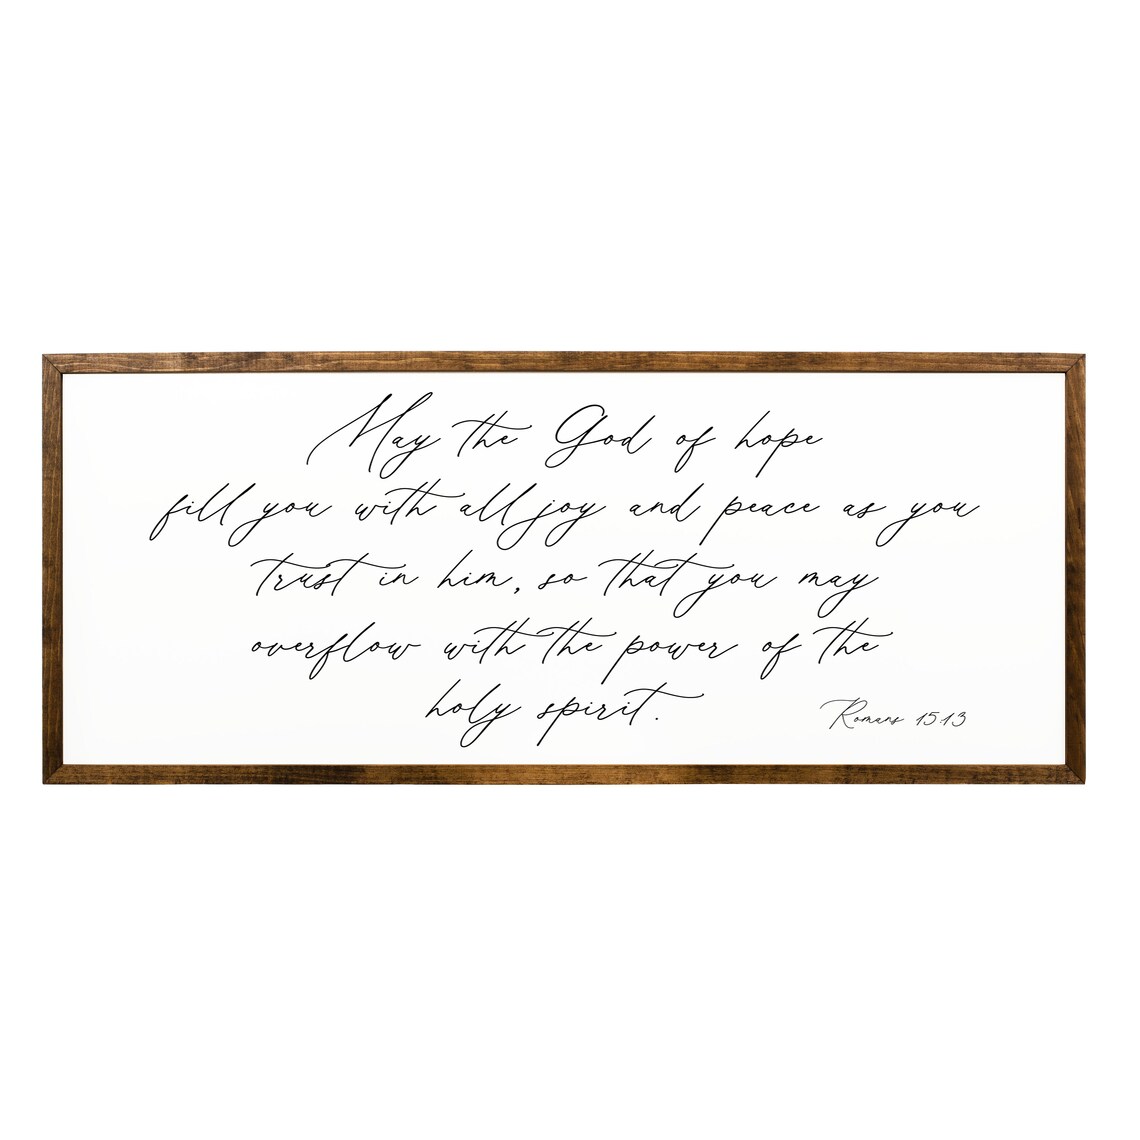 May the God of hope
fill you with all joy and peace as you
trust in him, so that you may
overflow with the power of the
holy spirit.
Romans 15:13